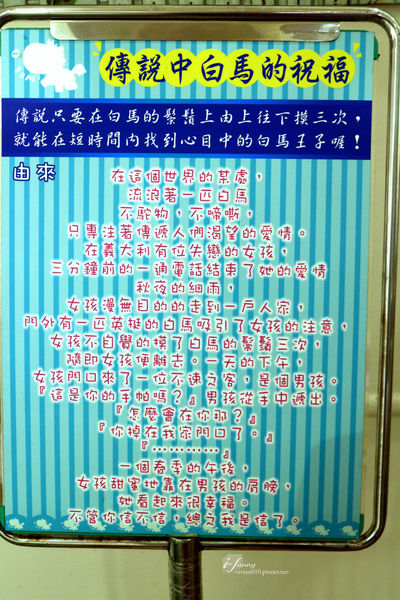 傳說中白馬的祝福
傳說只要在白馬的鬃鬚上由上往下摸三次，
就能在短時間內找到心目中的白馬王子喔！
由來
在這個世界的某處，
流浪著一匹白馬
不駝物，不啼嘶，
只專注著傳遞人們渴望的愛情。
在義大利有位失戀的女孩，
三分鐘前的一通電話結束了她的愛情
秋夜的細雨，
女孩漫無目的的走到一戶人家，
門外有一匹英挺的白馬吸引了女孩的注意，
女孩不自覺的摸了白馬的鬃鬚三次，
隨即女孩便離去。一天的下午，
女孩門口來了一位不速之客，是個男孩。
『這是你的手帕嗎？』男孩從手中遞出。
『怎麼會在你那？』
『你掉在我家門口了。』
『…………』
一個春季的午後，
女孩甜蜜地靠在男孩的肩膀，
她看起來很幸福。
不管你信不信，總之我是信了。
i-funny
vivian010.pixnet.net